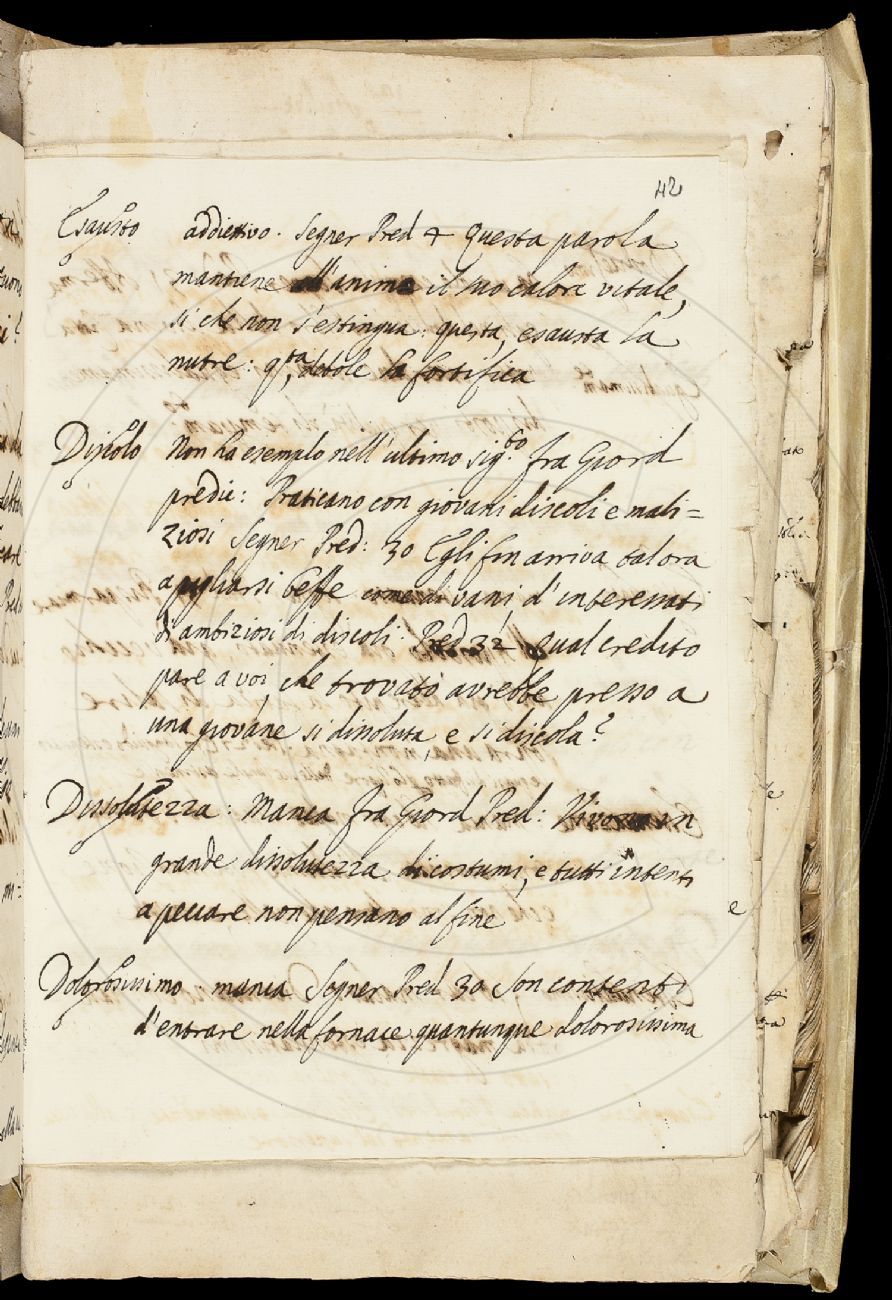 42
Esausto addiettivo. Segner Pred 4 Questa parola
mantiene all'anima il suo calore vitale,
sì che non s'estingua: questa, esausta la
nutre: q.ta, debole la fortifica
Discolo Non ha esemplo nell'ultimo sig.to fra Giord
predic: Praticano con giovani discoli e mali=
ziosi Segner Pred: 30 Egli fin arriva talora
a pigliarsi beffe come di vani, d'interessati
di ambiziosi di discoli. Pred 32 Qual credito
pare a voi, che trovato avrebbe presso a
una giovane si dissoluta, e si discola?
Dissolutezza: Manca fra Giord Pred: Vivono in
grande dissolutezza di costumi, e tutti intenti
a peccare non pensano al fine
Dolorosissimo manca Segner Pred 30 Son contenti
d'entrare nella fornace quantunque dolorosissima